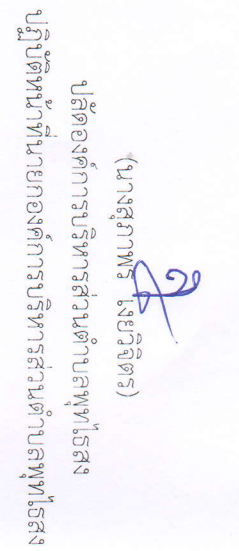 (นางสุภาพร ไชยวิจิตร)
ปลัดองค์การบริหารส่วนตำบลพุทไธสง
ปฏิบัติหน้าที่นายกองค์การบริหารส่วนตำบลพุทไธสง